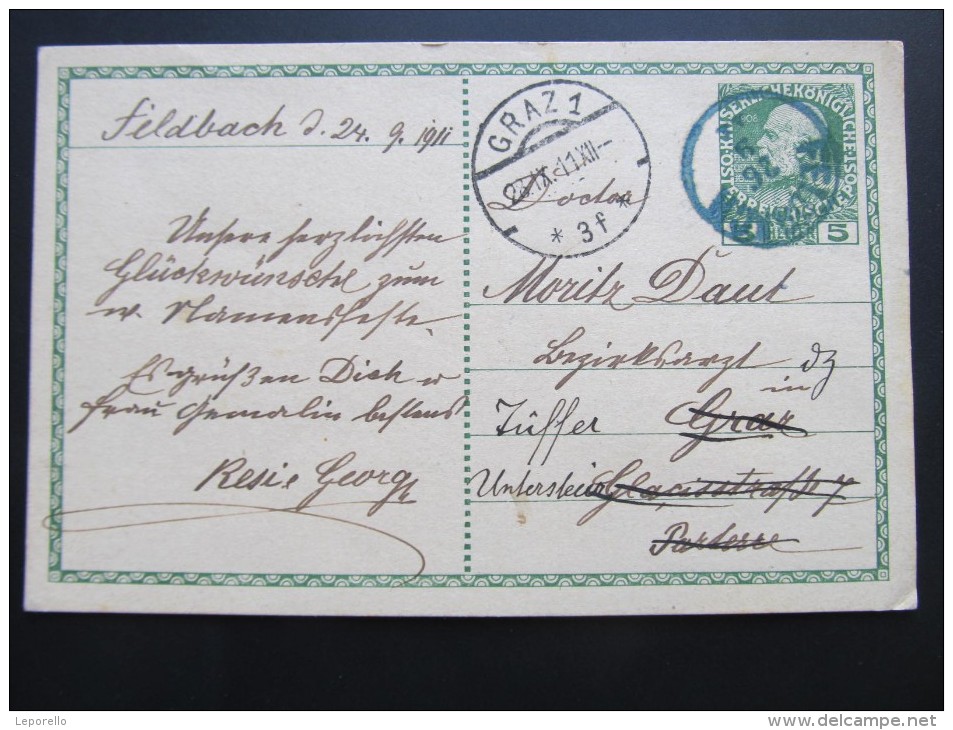 Feldbach d. 24. 9. 1911
Unsere herzlichsten
Glückwünsche zum
w. Namensfeste.
Es grüßen Dich u
Frau Gemalin bestens
Resi u Georg
GRAZ 1
IX. 11 XII
* 3f *
Doctor
Moritz Daut
Bezirksarzt dz
in
Tüffer Graz
Untersteier Glacisstraße 7
Parterre
KAISERLICHEKÖNIGLICHE
5 5
Leporello
www.delcampe.net